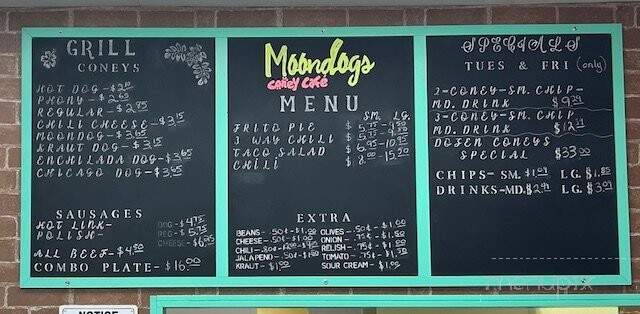 GRILL
CONEYS
HOT DOG-
PHONY-$2.65
REGULAR-$2.95
CHILI CHEESE-$3.15
MOONDOG-$3.65
KRAUT DOG-$3.15
ENCHILADA DOG-$3.65
CHICAGO DOG-$3.95
SAUSAGES
HOT LINK-
POLISH-
DOG-$4.75
REG-$5.75
CHEESE-$6.25
ALL BEEF-$4.50
COMBO PLATE-$16.00
Moondogs
Coney Cafe
MENU
SM. LG.
FRITO PIE
3 WAY CHILI
TACO SALAD $6.95-10.95
CHILI $8.00-15.50
EXTRA
BEANS-.50¢-$1.00
CHEESE-.50¢-$1.00
CHILI-
JALAPENO-.50¢-$1.00
KRAUT-$1.00
OLIVES-.50¢-$1.00
ONION-.75¢-$1.50
RELISH-.75¢-$1.00
TOMATO-.75¢-$1.50
SOUR CREAM-$1.00
SPECIALS
TUES & FRI (only)
2-CONEY-SM. CHIP-
MD. DRINK $9.29
3-CONEY-SM. CHIP
MD. DRINK
DOZEN CONEYS
SPECIAL $33.00
CHIPS- SM. $1.09 LG. $1.85
DRINKS-MD. LG.
NOTICE